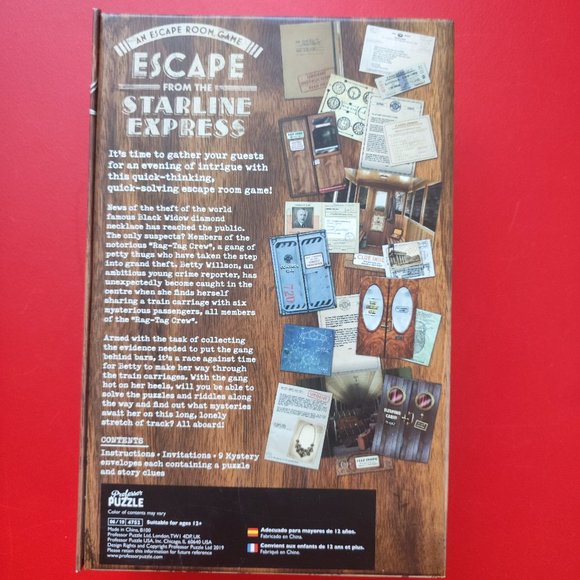 AN ESCAPE ROOM GAME
ESCAPE
FROM THE
STARLINE
EXPRESS
It's time to gather your guests
for an evening of intrigue with
this quick-thinking,
quick-solving escape room game!
News of the theft of the world
famous Black Widow diamond
necklace has reached the public.
The only suspects? Members of the
notorious "Rag-Tag Crew", a gang of
petty thugs who have taken the step
into grand theft. Betty Willson, an
ambitious young crime reporter, has
unexpectedly become caught in the
centre when she finds herself
sharing a train carriage with six
mysterious passengers, all members
of the "Rag-Tag Crew".
Armed with the task of collecting
the evidence needed to put the gang
behind bars, it's a race against time
for Betty to make her way through
the train carriages. With the gang
hot on her heels, will you be able to
solve the puzzles and riddles along
the way and find out what mysteries
await her on this long, lonely
stretch of track? All aboard!
CONTENTS
Instructions • Invitations • 9 Mystery
envelopes each containing a puzzle
and story clues
Professor
PUZZLE
Color of contents may vary
06/19 6752 Suitable for ages 12+
Made in China, B100
Professor Puzzle Ltd, London, TW1 4DP, UK
Professor Puzzle USA, Inc. Chicago, IL 60640 USA
Design Rights and Copyright Professor Puzzle Ltd 2019
Please retain this information for future reference
www.professorpuzzle.com
Adecuado para mayores de 12 años.
Fabricado en China.
Convient aux enfants de 12 ans et plus.
Fabriqué en Chine.
SLEEPING
CABIN